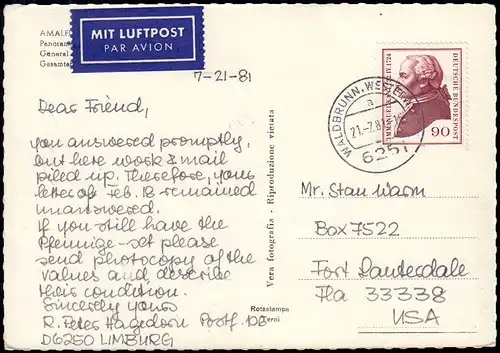 AMALF
Panoram
General
Gesamta
MIT LUFTPOST
PAR AVION
7-21-81
Dear Friend,
you answered promptly,
but here work & mail
piled up. Therefore, your
letter of Feb. 18 remained
unanswered.
If you still have the
Pfennige-set please
send photocopy of the
values and describe
their condition.
Sincerely yours
R. Peter Hagedorn Postf. 108
D6250 LIMBURG
Vera fotografia - Riproduzione vietata
Rotastampa
Terni
WALDBRUNN, WESTERW
a
21.-7.81
6251
IMMANUEL 1724
DEUTSCHE BUNDESPOST
90
Mr. Stan Warm
Box 7522
Fort Lauterdale
Fla 33338
USA